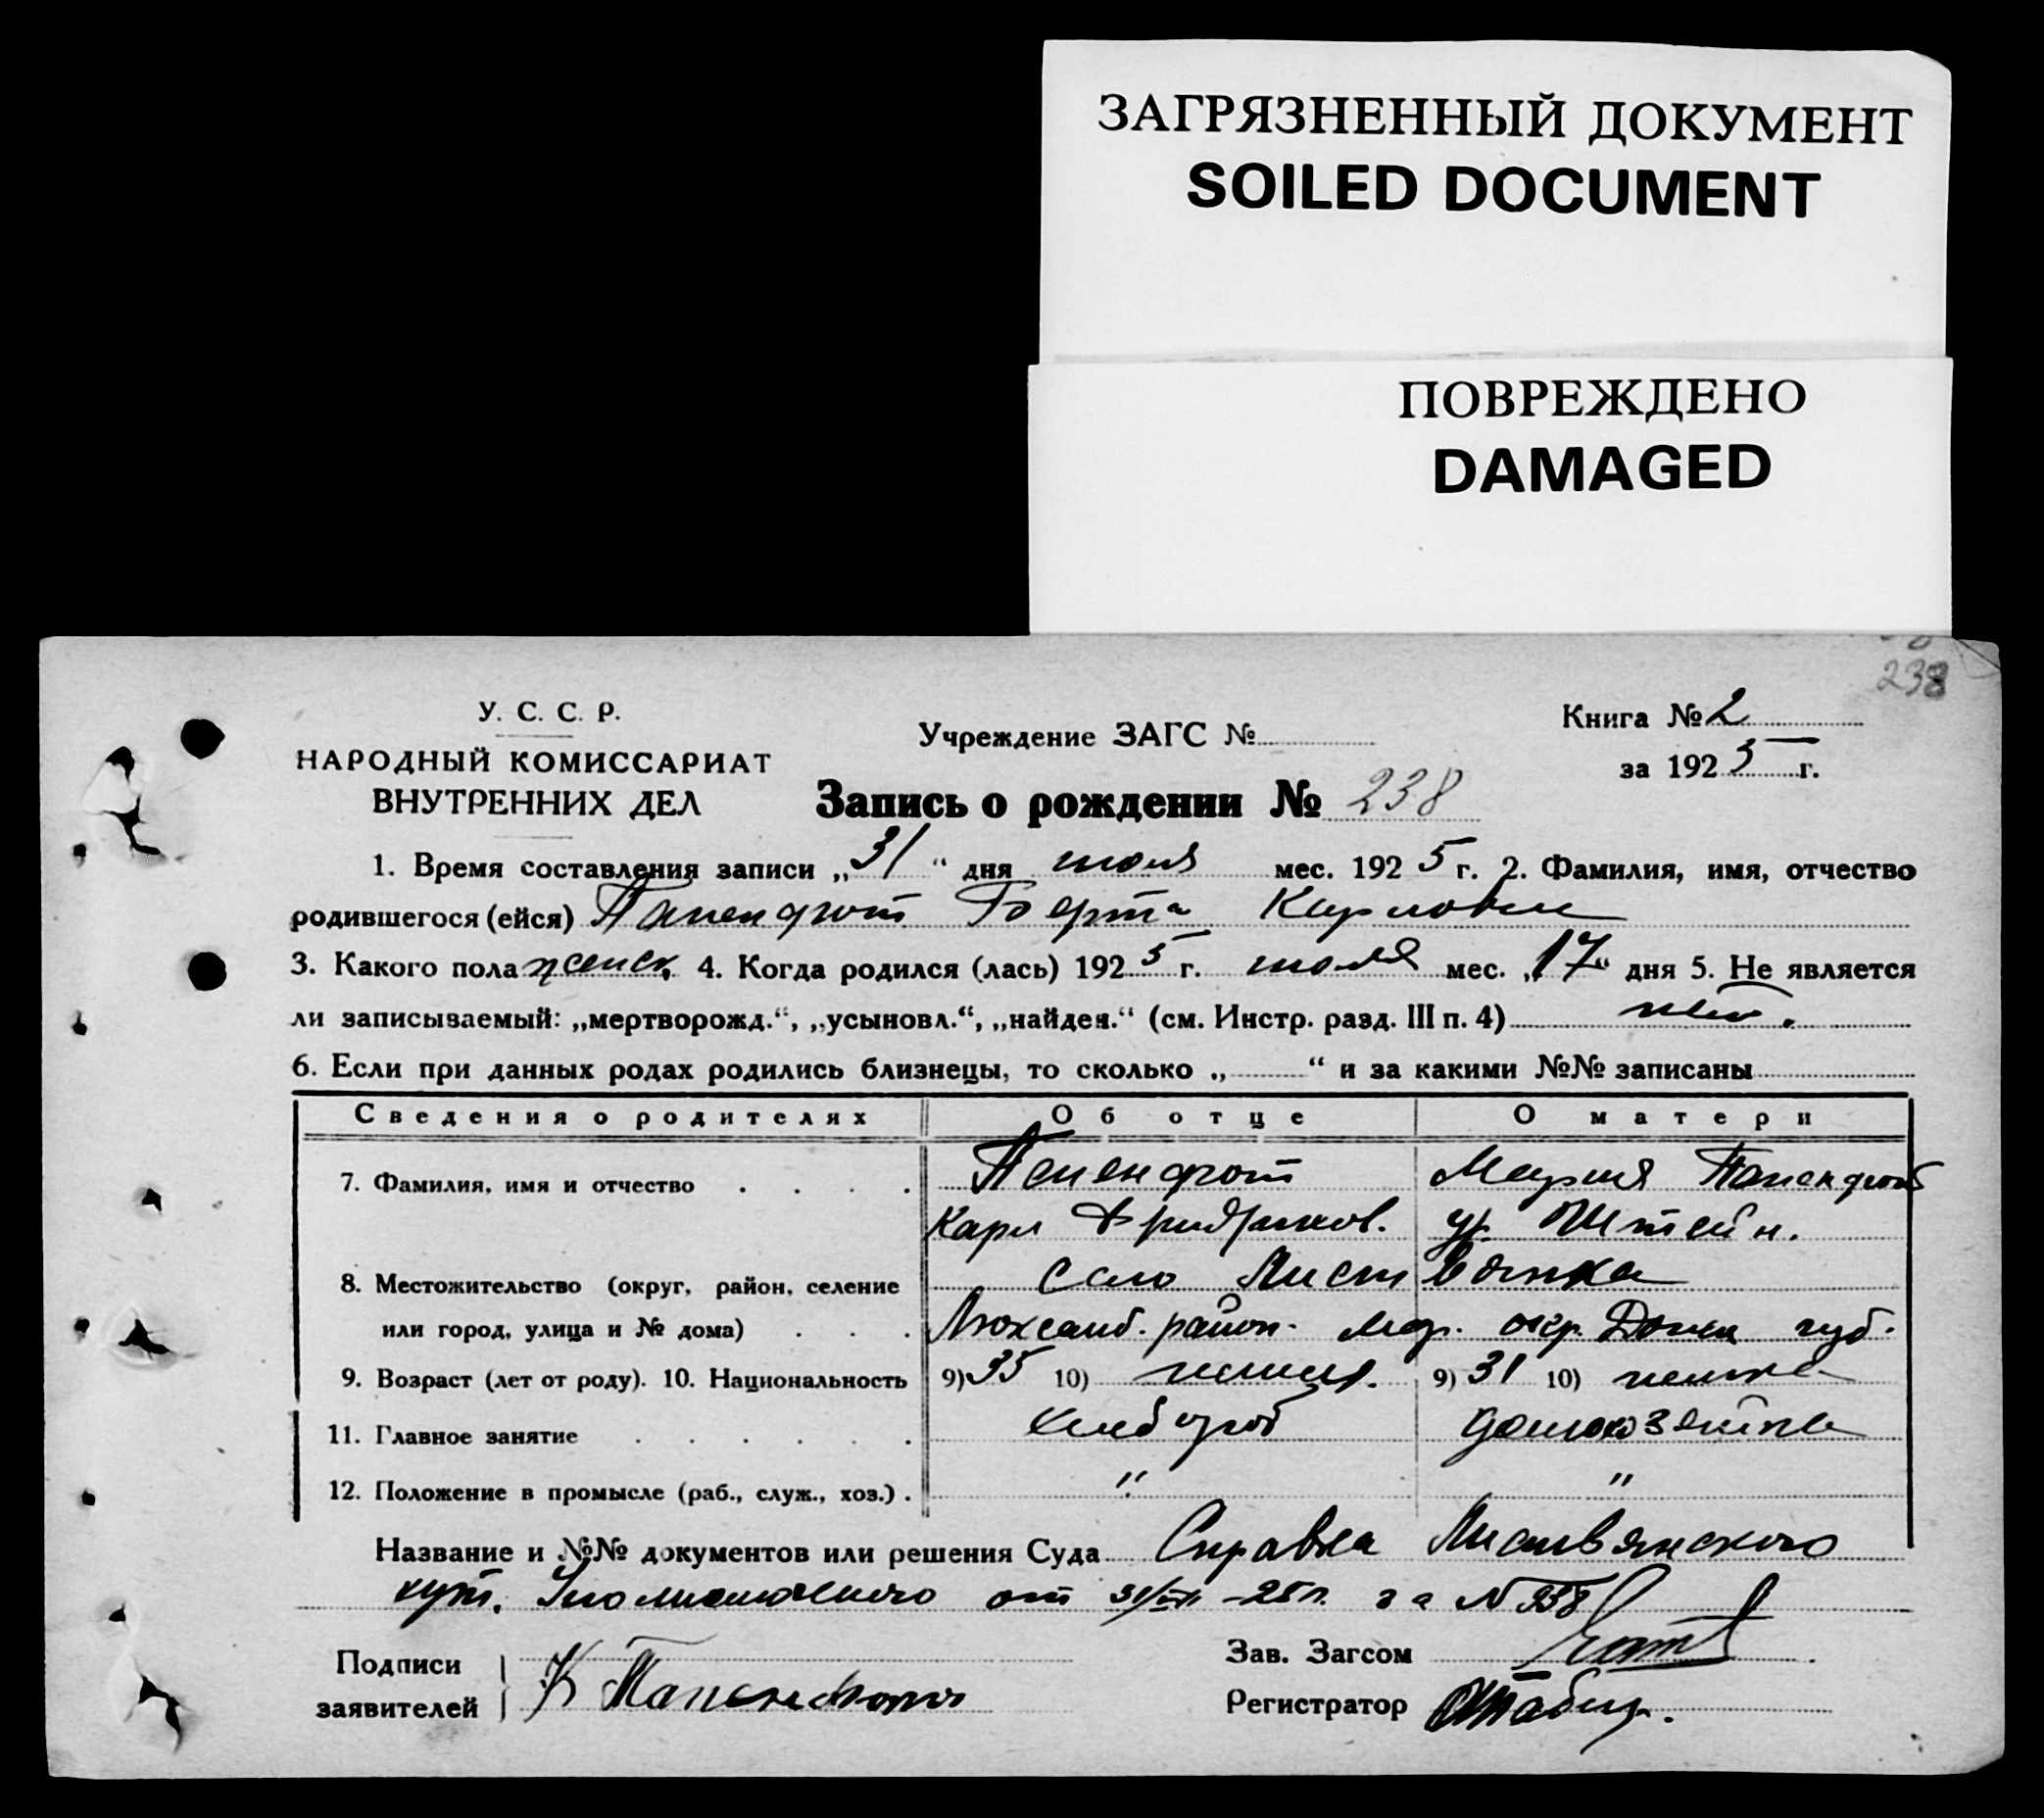 ЗАГРЯЗНЕННЫЙ ДОКУМЕНТ
SOILED DOCUMENT
ПОВРЕЖДЕНО
DAMAGED
238
У. С. С. Р.
НАРОДНЫЙ КОМИССАРИАТ
ВНУТРЕННИХ ДЕЛ
Учреждение ЗАГС №
Книга № 2
за 1925 г.
Запись о рождении № 238
1. Время составления записи „31“ дня июля мес. 1925 г. 2. Фамилия, имя, отчество
родившегося (ейся) Папендрот Берта Карловна
3. Какого пола женск. 4. Когда родился (лась) 1925 г. июля мес. „17“ дня 5. Не является
ли записываемый: „мертворожд.“, „усыновл.“, „найден.“ (см. Инстр. разд. III п. 4) нет.
6. Если при данных родах родились близнецы, то сколько „ “ и за какими №№ записаны
Сведения о родителях Об отце О матери
7. Фамилия, имя и отчество . . . . Папендрот Мария Папендрот
Карл Фридрихов. ур. Штейн.
8. Местожительство (округ, район, селение село Листвянка
или город, улица и № дома) . . . Люксемб. район. Мар. окр. Донец. губ.
9. Возраст (лет от роду). 10. Национальность 9) 35 10) немец. 9) 31 10) немка
11. Главное занятие . . . . . . хлебороб домохозяйка
12. Положение в промысле (раб., служ., хоз.) . " "
Название и №№ документов или решения Суда Справка Листвянского
хут. Уполномоченного от 31/VII -25 г. за N 938
Подписи
заявителей
К Папендрот
Зав. Загсом
Регистратор